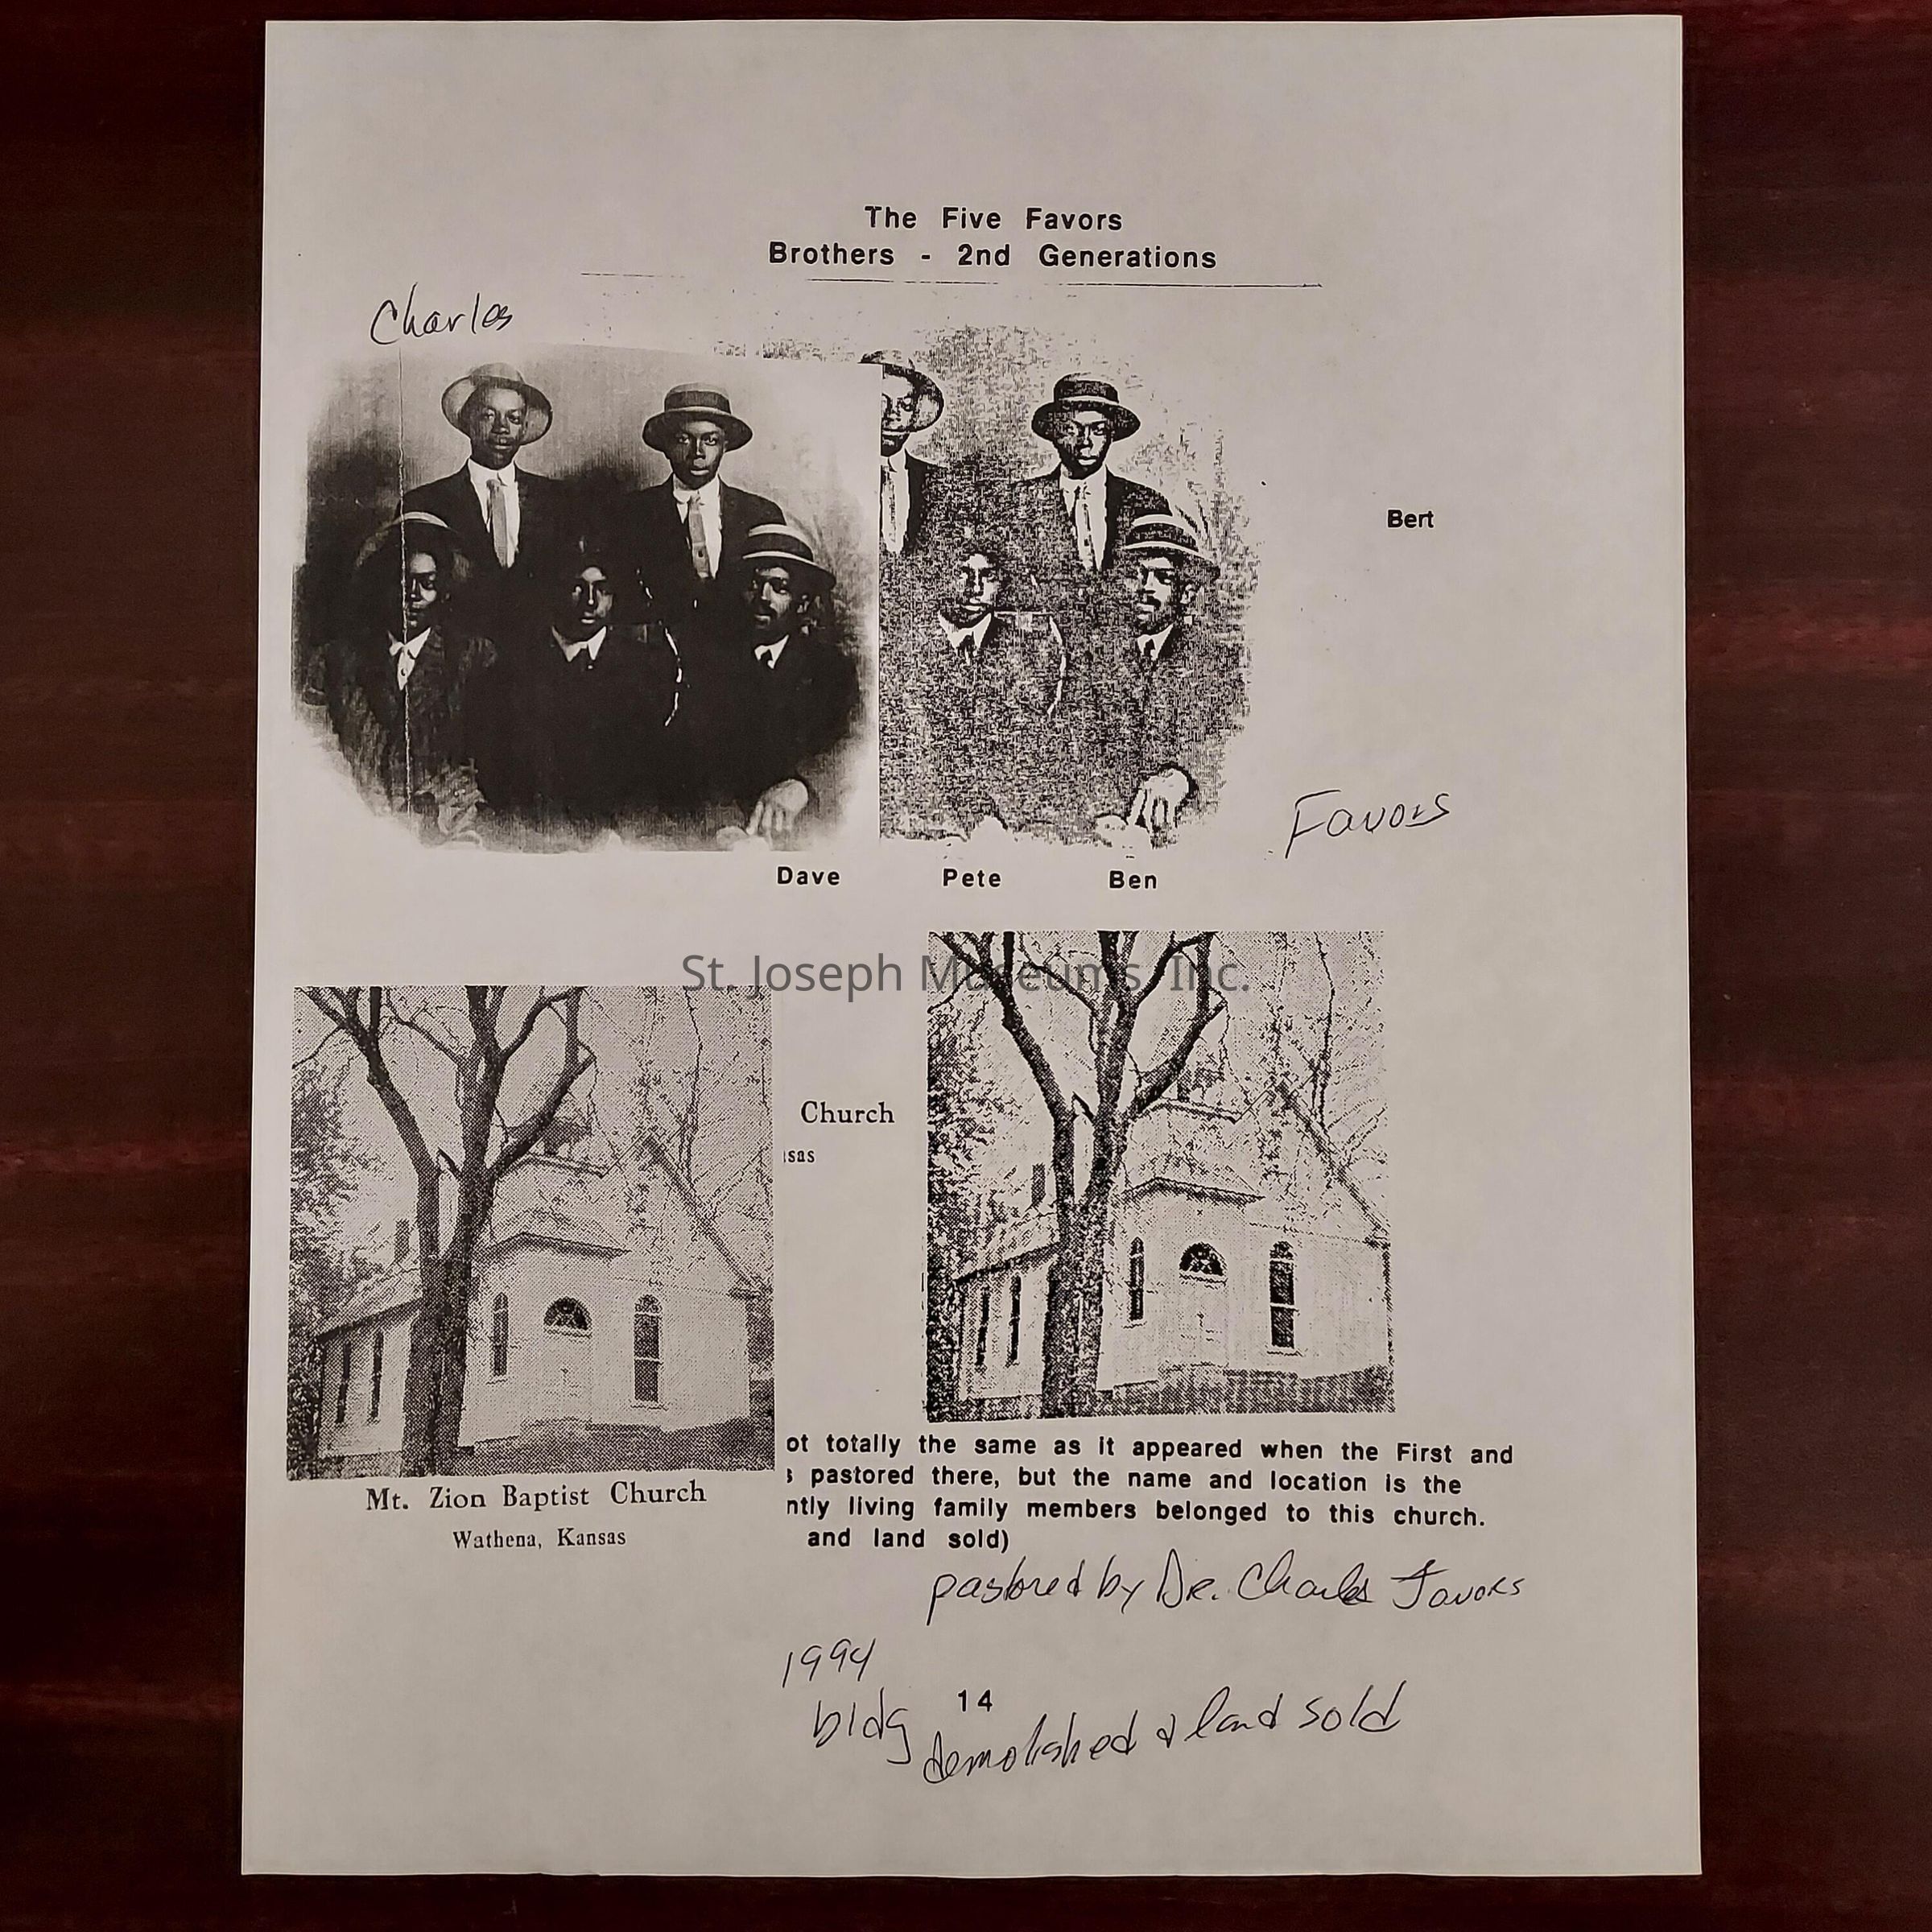 The Five Favors
Brothers - 2nd Generations
Charles
Bert
Favors
Dave Pete Ben
St. Joseph Museums, Inc.
Church
sas
Mt. Zion Baptist Church
Wathena, Kansas
ot totally the same as it appeared when the First and
s pastored there, but the name and location is the
ntly living family members belonged to this church.
and land sold)
pastored by Dr. Charles Favors
1994
14
bldg demolished & land sold